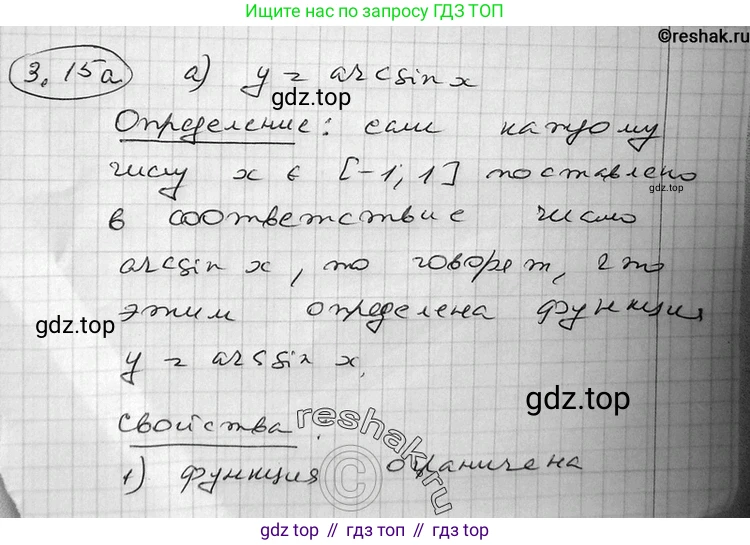 Ищите нас по запросу ГДЗ ТОП
©reshak.ru
3.15а а) y = arcsin x
gdz.top
Определение: если каждому
числу x ∈ [-1; 1] поставлено
gdz.top
в соответствие число
arcsin x, то говорят, что
этим определена функция
gdz.top
y = arcsin x.
gdz.top
Свойства
reshak.ru
©
1) функция ограничена
gdz.top // гдз топ // gdz.top